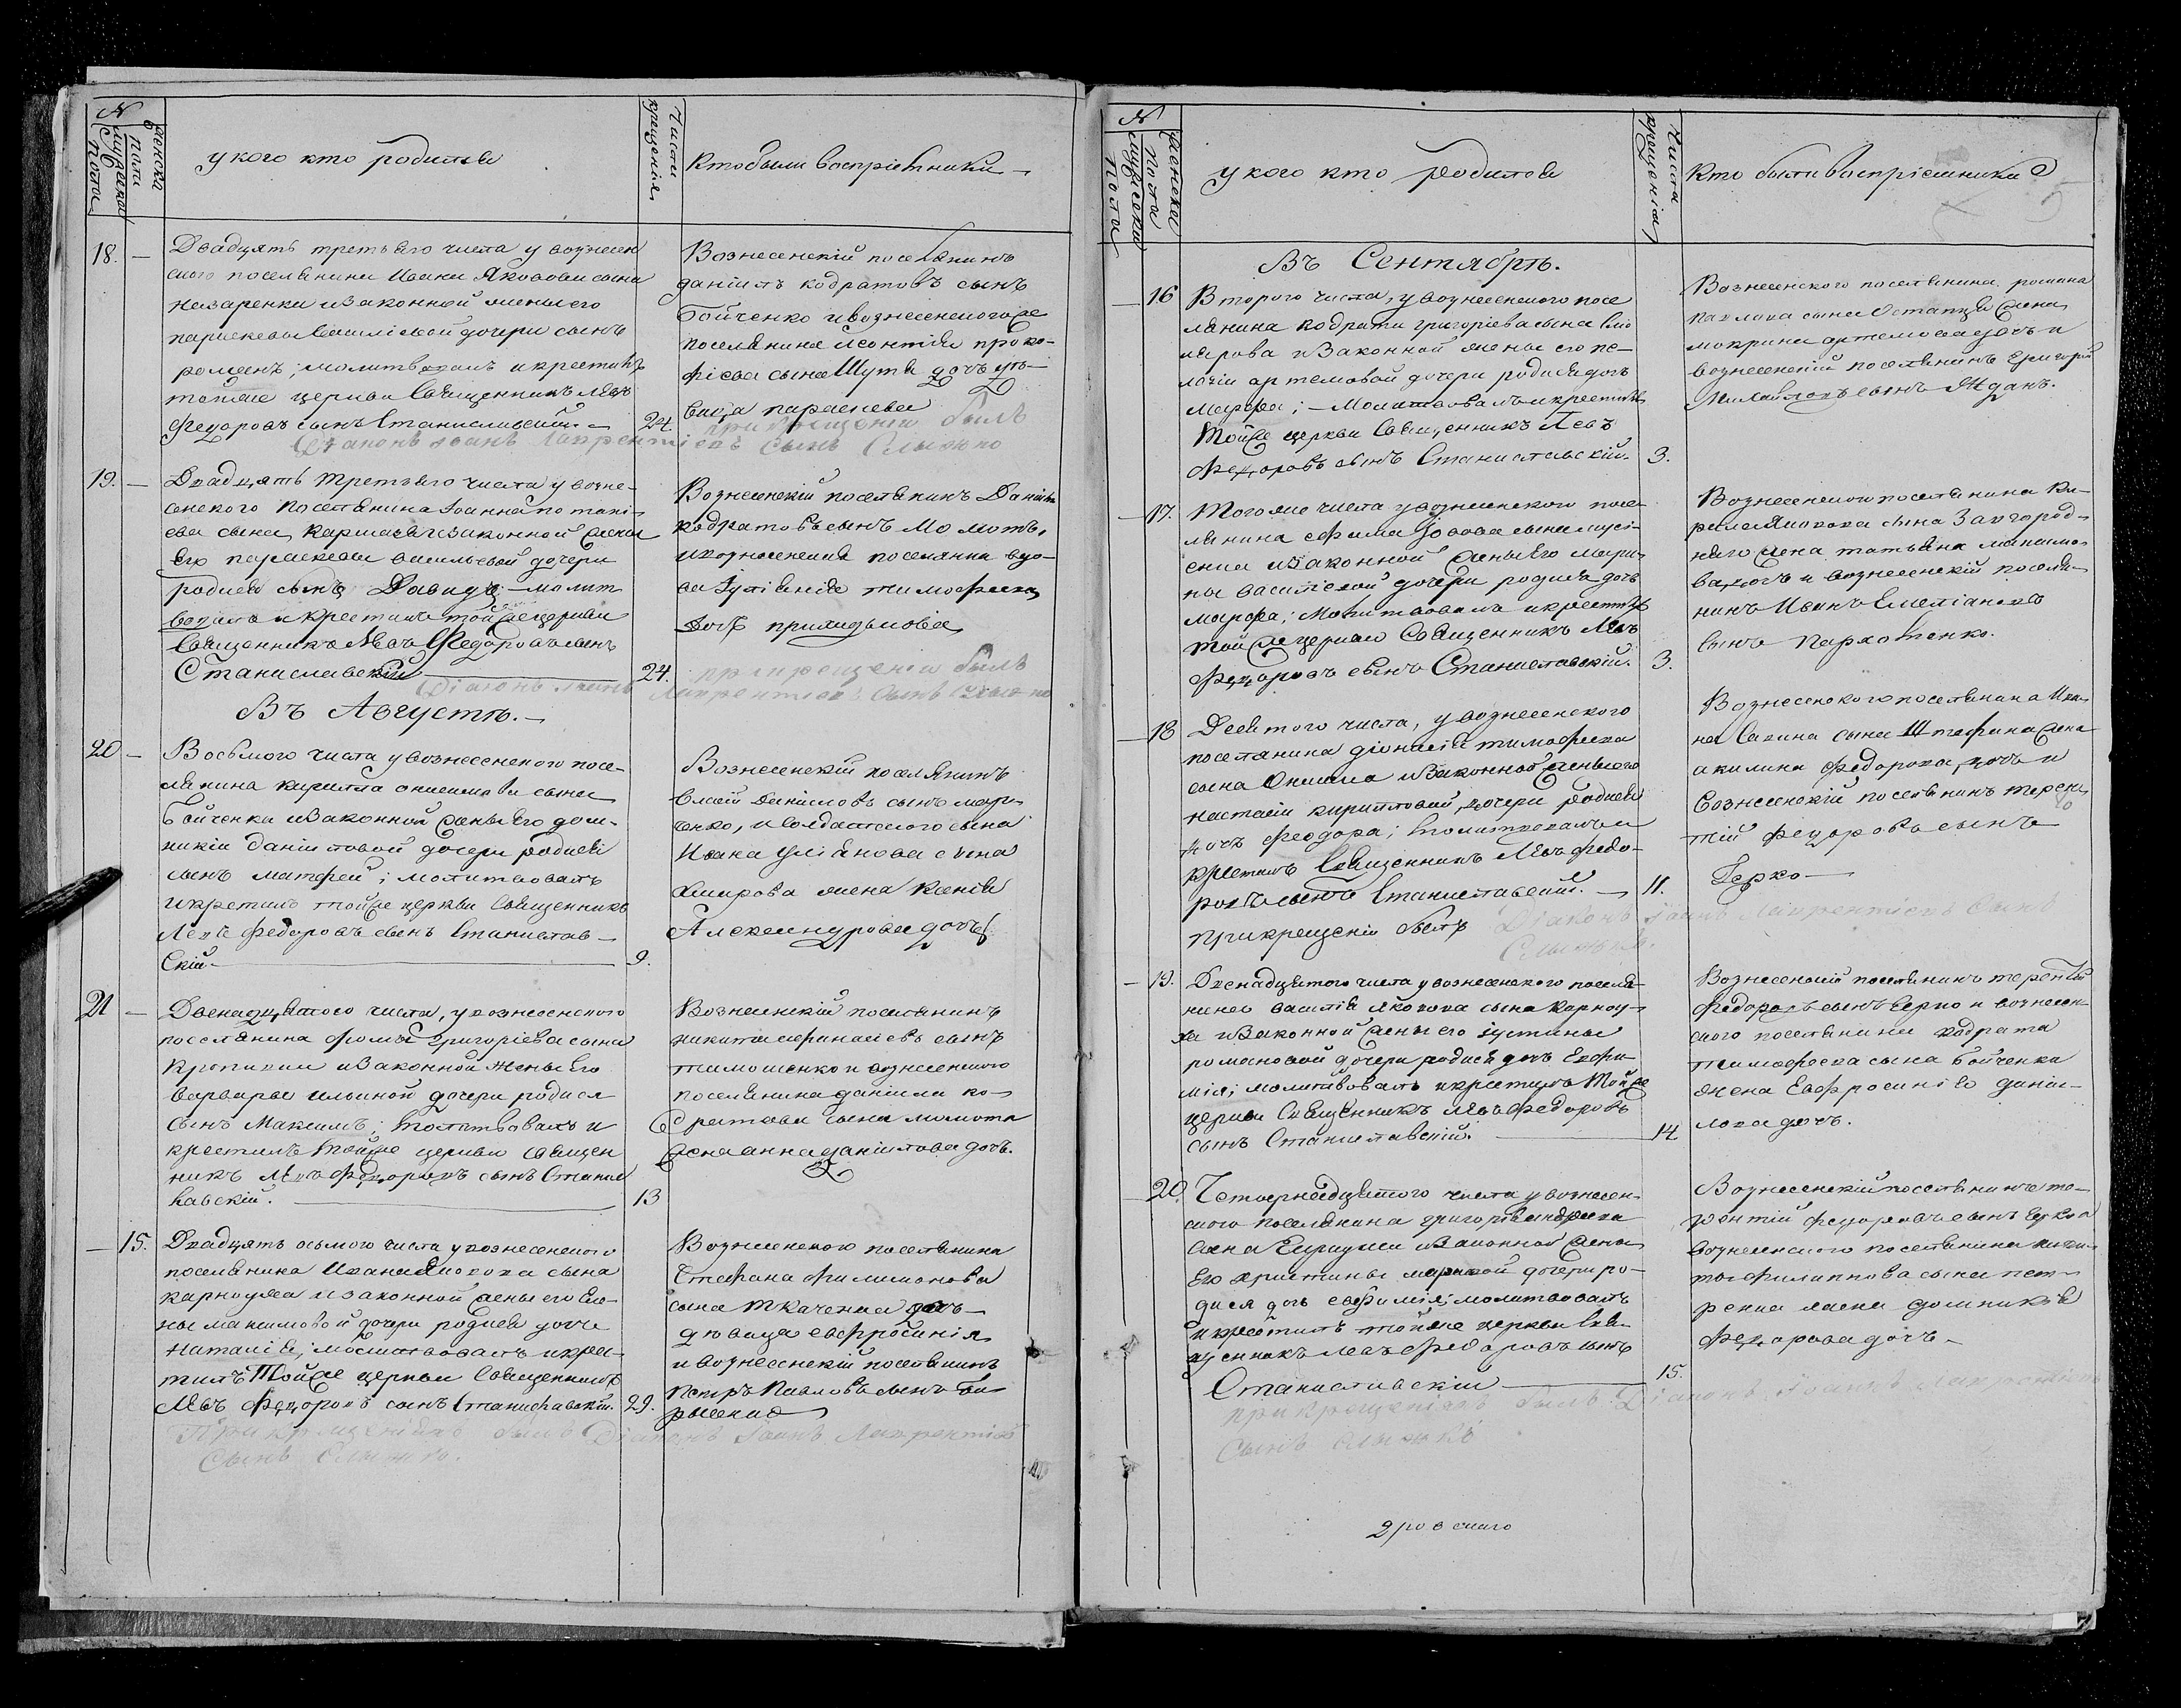 №
женска
пола
мужеска
пола
у кого кто родился
Числа
крещенія
Кто были воспріемники
18.
Двадцять третьяго числа у вознесен
ского поселянина Ивана Яковова сына
Назаренка и законной жены его
параскевы василіевой дочери сынъ
романъ; молитвовалъ и крестилъ
тойже церкви Священникъ Левъ
Федоровъ сынъ Станиславскій
24.
Вознесенскій поселянинъ
даніилъ кодратовъ сынъ
Бойченко и вознесенского
поселянина леонтія проко-
фіева сына Шутя дочъ дѣ-
вица параскева
при крещеніи былъ
Діаконъ Іоанъ Лаврентіевъ сынъ Слыжко
19.
Двадцять третьяго числа у возне-
сенского поселянина Іоанна потапі-
ева сына и законной жены
его параскевы васильевой дочери
родился сынъ Давидъ - молит
вовалъ и крестилъ тойже церкви
Священникъ Левъ Федоровъ сынъ
Станиславскій
24.
Вознесенскій поселянинъ Даніилъ
кодратовъ сынъ Момотъ,
и вознесенская поселянка вдо-
ва Іуліянія тимофеева
дочъ
при крещеніи былъ
Діаконъ Іоанъ Лаврентіевъ Сынъ Слыжко
Въ Августѣ.
20
Восьмого числа у вознесенского посе-
лянина кирилла онисимова сына
Бойченка и законной жены его дом-
никіи даніиловой дочери родился
сынъ матфей; молитвовалъ
и крестилъ тойже церкви Священникъ
Левъ Федоровъ сынъ Станислав-
скій
9.
Вознесенскій поселянинъ
власій даниловъ сынъ мар-
ченко, и Солдатского сына
Ивана уліянова сына
жена Ксенія
Александрова дочъ
21
Двенадцятого числа, у вознесенского
поселянина фомы григоріева сына
Кропивки и законной жены его
варвары ильиной дочери родился
сынъ Максимъ; молитвовалъ и
крестилъ тойже церкви священ
никъ Левъ Федоровъ сынъ Станис
лавскій.
13
Вознесенскій поселянинъ
никита афанасіевъ сынъ
тимошенко и вознесенского
поселянина даніила ко-
дратова сына момота
жена анна даніилова дочъ.
15.
Двадцять осьмого числа у вознесенского
поселянина Ивана Яковова сына
карноуха и законной жены его еле-
ны максимовой дочери родися дочъ
Наталія; молитвовалъ и крес-
тилъ Тойже церкви Священникъ
Левъ Федоровъ сынъ Станиславскій.
29.
Вознесенского поселянина
Стефана филимонова
сына ткаченка дочъ
дѣвица евфросинія
и вознесенскій поселянинъ
петръ Павловъ сынъ
При крещеніяхъ былъ Діаконъ Іоанъ Лаврентіевъ
Сынъ Слыжко.
№
женска
пола
мужеска
пола
у кого кто родился
Числа
крещенія
Кто были воспріемники
5
Въ Сентябрѣ.
16
Второго числа, у вознесенского посе
лянина кодрата григоріева сына
и законной жены его пе-
лагіи артемовой дочери родися дочъ
марфа; - Молитвовалъ и крестилъ
Тойже церкви Священникъ Левъ
Федоровъ сынъ Станиславскій.
3.
Вознесенского поселянина романа
павлова сына Остапця жена
мокрина артемова дочъ и
вознесенскій поселянинъ григорій
Михайловъ сынъ Жданъ.
17.
Того же числа у вознесенского посе-
лянина ефима сына
и законной жены его мари-
ны василіевой дочери родися дочъ
марфа; молитвовалъ и крестилъ
тойже церкви Священникъ Левъ
Федоровъ сынъ Станиславскій.
3.
Вознесенского поселянина Ки-
рила Яковова сына Загород-
него жена татьяна максимо-
ва дочъ и вознесенскій поселя-
нинъ Иванъ Емеліановъ
сынъ Пархоменко.
18
Десятого числа, у вознесенского
поселянина діонисія тимофеева
сына и законной жены его
настасіи кирилловой дочери родися
дочъ феодора; молитвовалъ и
крестилъ Священникъ Левъ федо-
ровъ сынъ Станиславскій.
11.
При крещеніи былъ Діаконъ Іоанъ Лаврентіевъ Сынъ
Слыжко.
Вознесенского поселянина Ива-
на Савина сына жена
акилина Федорова дочъ и
Вознесенскій поселянинъ терен-
тій федоровъ сынъ
Герко
19.
Двенадцятого числа у вознесенского поселя-
нина василія Яковова сына Карноу-
ха и законной жены его іустины
романовой дочери родися дочъ Евфи-
мія; молитвовалъ и крестилъ Тойже
церкви Священникъ Левъ Федоровъ
сынъ Станиславскій.
14
Вознесенскій поселянинъ терентій
федоровъ сынъ Герко и вознесен-
ского поселянина кодрата
тимофеева сына Бойченка
жена Евфросинія даніи-
лова дочъ.
20.
Четвернадцятого числа у вознесен-
ского поселянина григорія андреева
сына и законной жены
его христины марковой дочери ро-
дися дочъ евфимія; молитвовалъ
и крестилъ тойже церкви Свя-
щенникъ Левъ Федоровъ сынъ
Станиславскій
15.
Вознесенскій поселянинъ те-
рентій федоровъ сынъ Герко и
вознесенского поселянина
филиппова сына пет-
ренка жена домникія
федорова дочъ
при крещеніяхъ былъ Діаконъ Іоанъ Лаврентіевъ
Сынъ Слыжко